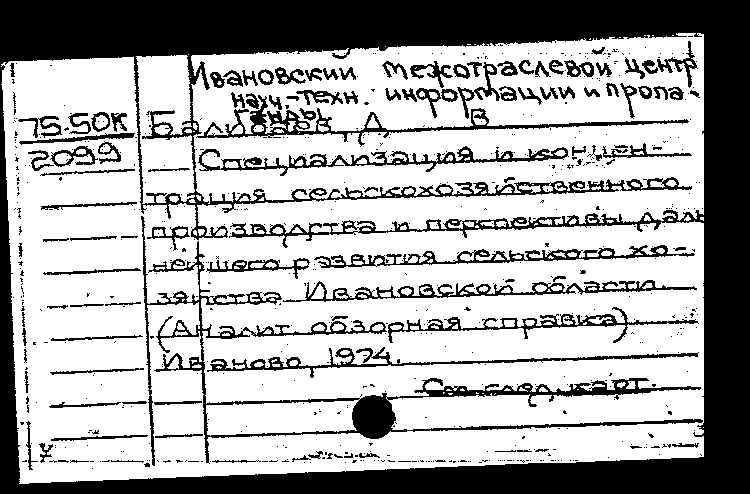 Ивановский межотраслевой центр
научн.-техн. информации и пропа-
ганды.
75-50К Балибаев, Д В
2099 Специализация и концен-
трация сельскохозяйственного
производства и перспективы даль
нейшего развития сельского хо-
зяйства Ивановской области.
(Аналит. обзорная справка).
Иваново, 1974.
См. след. карт.